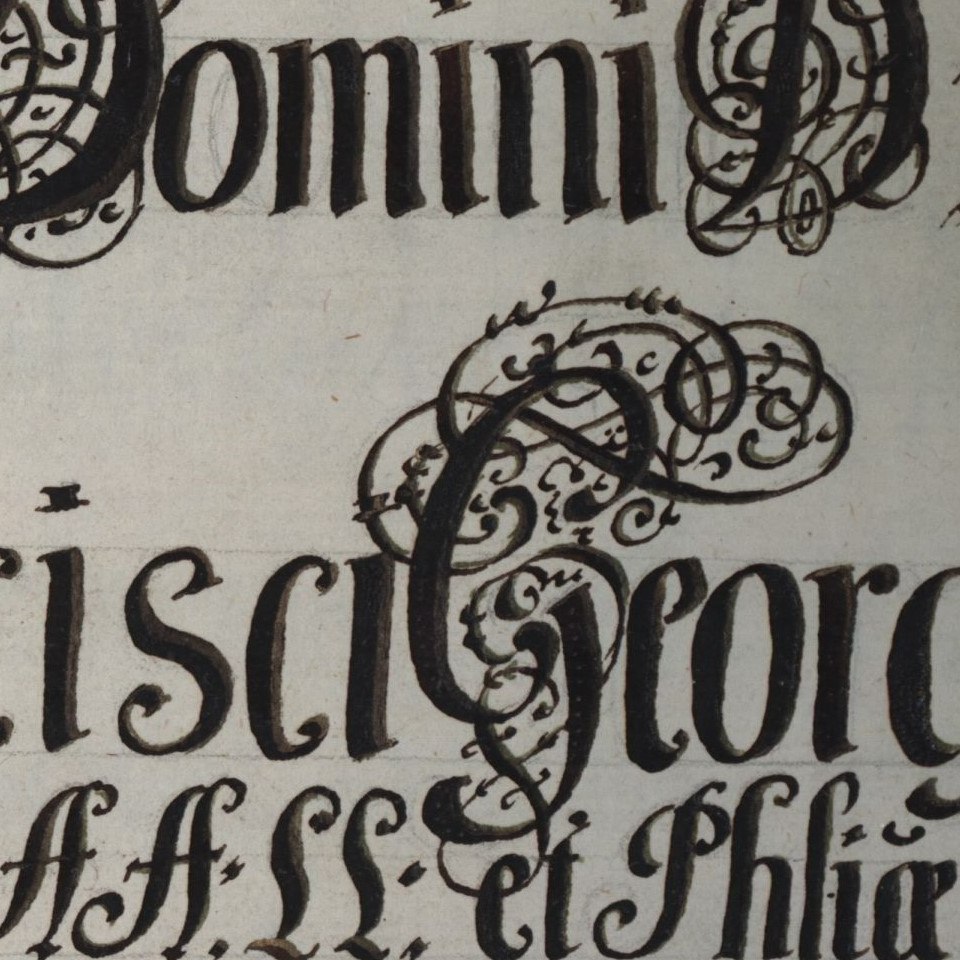 Domini D
isci Georg
AA. LL. et Phliæ